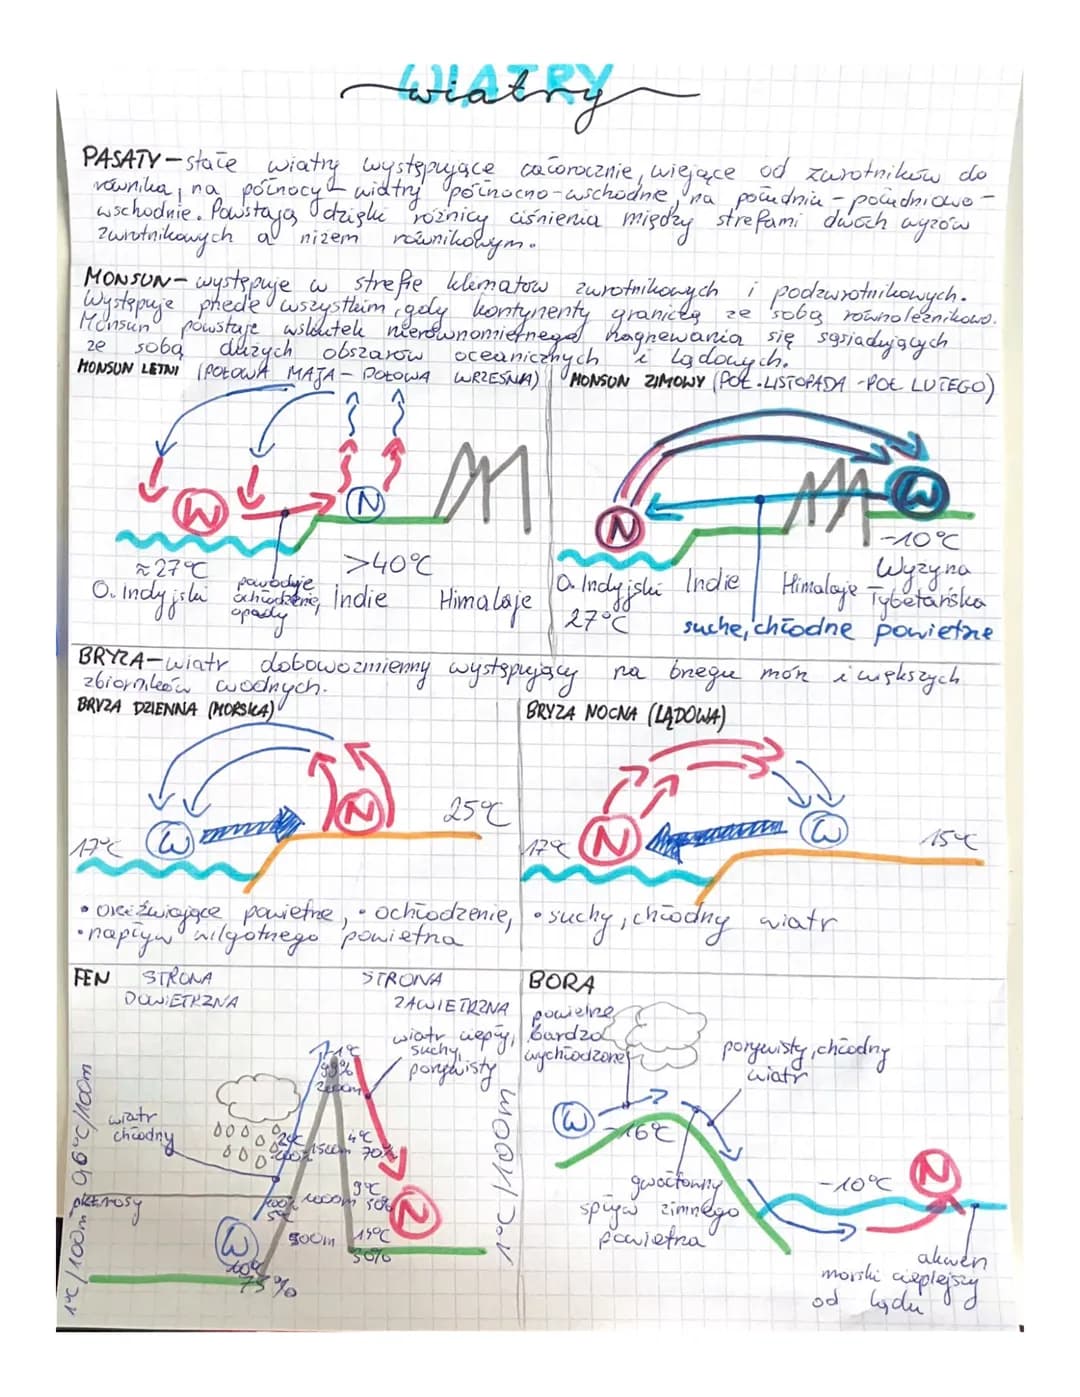 WIATRY
wiatry
PASATY - stałe wiatry występujące całorocznie, wiejące od zwrotników do
równika, na północy - wiatry północno-wschodnie, na południu - południowo-
wschodnie. Powstają dzięki różnicy ciśnienia między strefami dwóch wyżów
zwrotnikowych a niżem równikowym.
MONSUN - występuje w strefie klimatów zwrotnikowych i podzwrotnikowych.
Występuje przede wszystkim, gdy kontynenty graniczą ze sobą równoleżnikowo.
Monsun powstaje wskutek nierównomiernego nagrzewania się sąsiadujących
ze sobą dużych obszarów oceanicznych i lądowych.
MONSUN LETNI (POŁOWA MAJA - POŁOWA WRZEŚNIA)
W
N
≈27°C
>40°C
O. Indyjski
powoduje
ochłodzenie,
opady
Indie
Himalaje
MONSUN ZIMOWY (POŁ. LISTOPADA - POŁ LUTEGO)
W
N
-10°C
O. Indyjski
27°C
Indie
Himalaje
Wyżyna
Tybetańska
suche, chłodne powietrze
BRYZA - wiatr dobowozmienny występujący na brzegu mórz i większych
zbiorników wodnych.
BRYZA DZIENNA (MORSKA)
17°C
W
N
25°C
• orzeźwiające powietrze, • ochłodzenie,
• napływ wilgotnego powietrza
BRYZA NOCNA (LĄDOWA)
17°C
N
W
15°C
• suchy, chłodny wiatr
FEN
STRONA
DOWIETRZNA
STRONA
ZAWIETRZNA
wiatr ciepły,
suchy,
porywisty
-1°C
99%
2000m
wiatr
chłodny
2°C
100%
1500m
4°C
70%
100%
5°C
1000m
9°C
50%
500m
14°C
30%
W
10°C
75%
N
1°C/100m
0,6°C/100m
1°C/100m
BORA
powietrze
bardzo
wychłodzone
porywisty, chłodny
wiatr
W
-16°C
gwałtowny
spływ zimnego
powietrza
-10°C
N
akwen
morski cieplejszy
od lądu